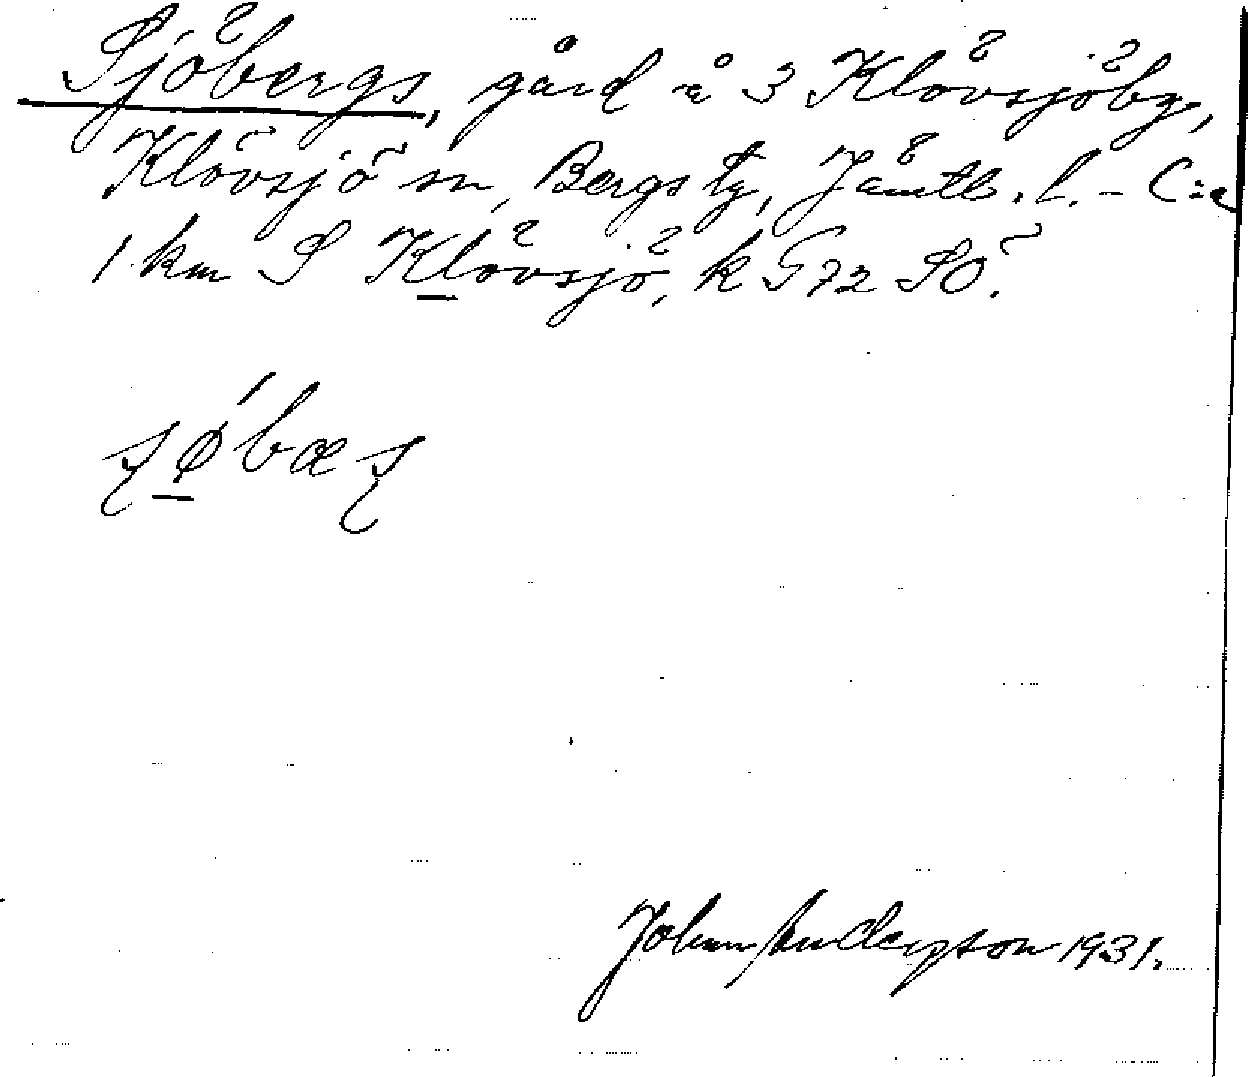 Sjöbergs, gård å 3 Klövsjöby,
Klövsjö sn, Bergs tg, Jämtl. l. - C:a
1 km S Klövsjö, k G 72 SÖ.
ʂǿbæʂ
Johan Anderson 1931.